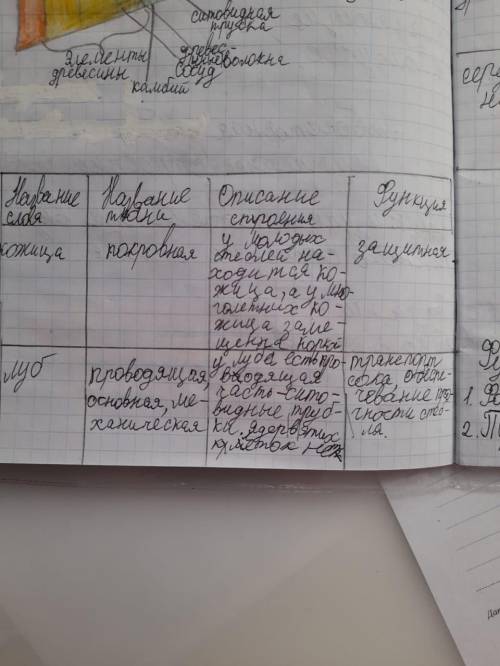 ситовидная
трубка
элементы
древесины
древес-
волокна
сосуд
камбий
Название
слоя
Название
ткани
Описание
строения
Функция
кожица
покровная
у молодых
стеблей на-
ходится ко-
жица, а у мно-
голетних ко-
жица заме-
щена
защитная
луб
проводящая,
основная, ме-
ханическая
у луба есть про-
водящая
часть-сито-
видные труб-
ки. ядер в этих
клетках нет
транспорт
сока, обеспе-
чевание про-
чности стеб-
ла.
1.
2.